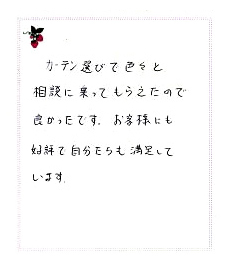 カーテン選びで色々と
相談に乗ってもらえたので
良かったです。お客様にも
好評で自分たちも満足して
います。